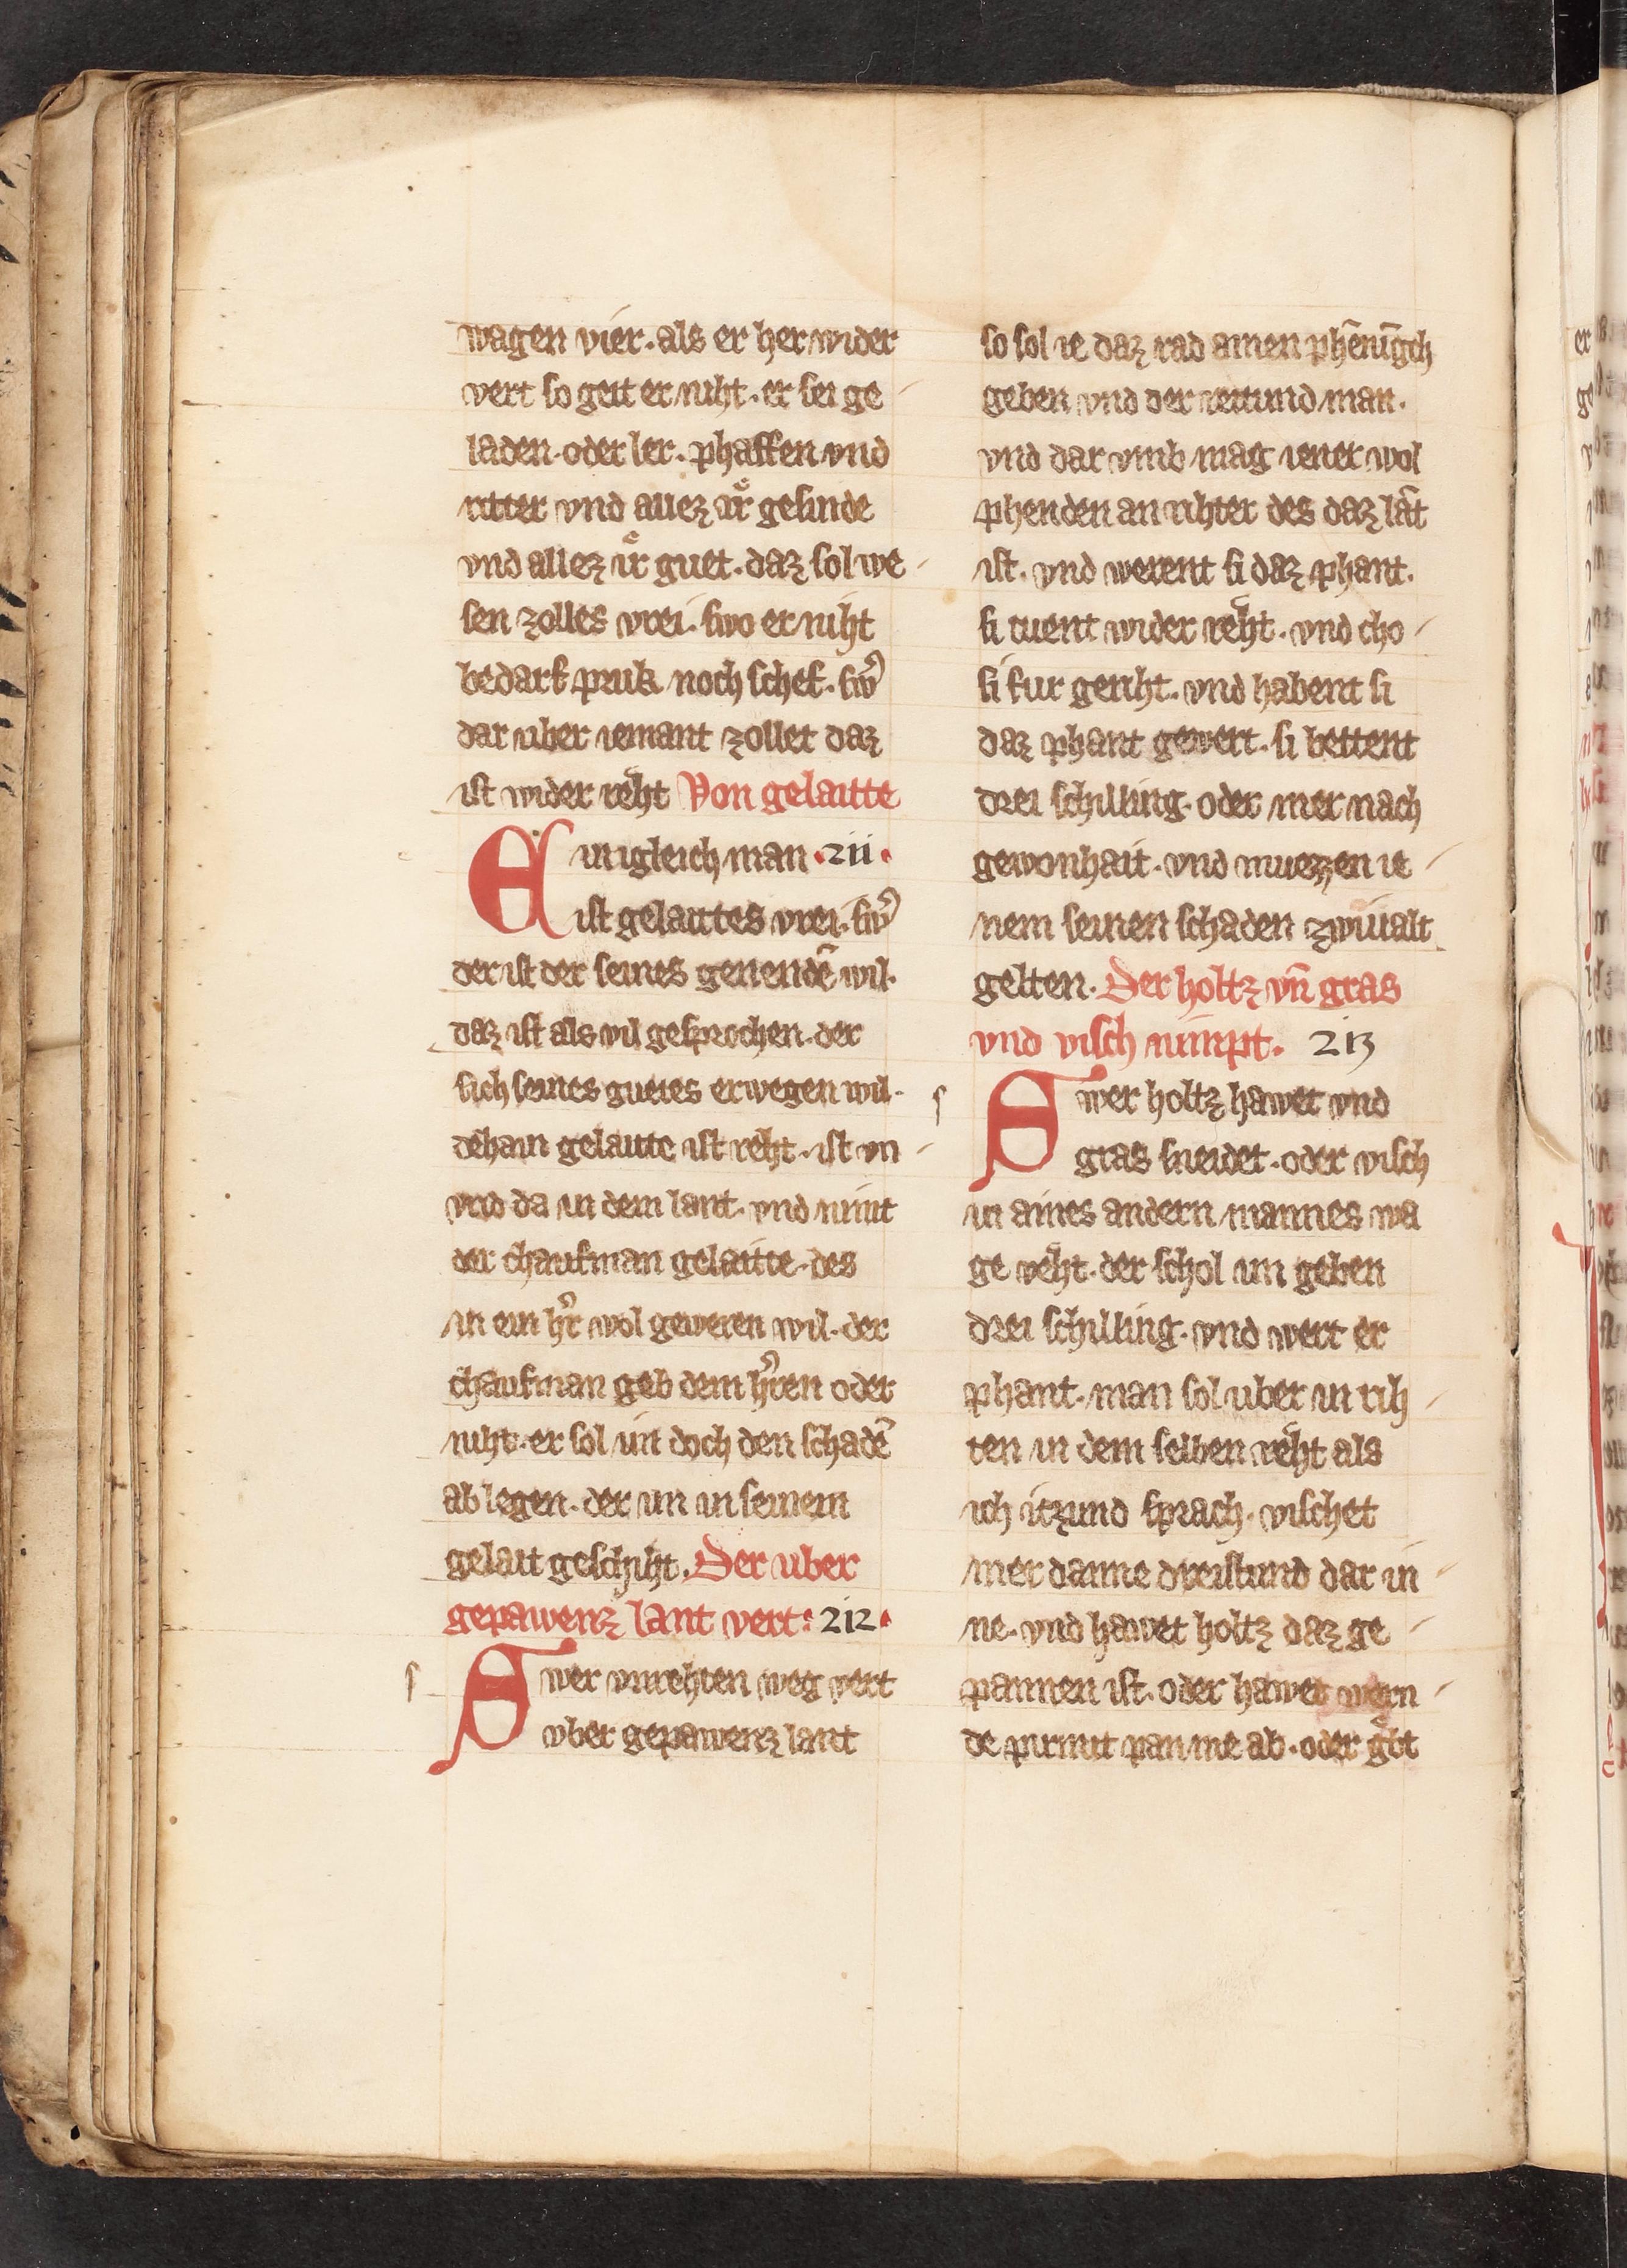 wagen vier. als er her wider
vert so geit er niht. er sei ge
laden. oder ler. phaffen vnd
ritter vnd allez iͤr gesinde
vnd allez iͤr guet. daz sol we
sen zolles vrei. swo er niht
bedarf pruk noch schef. sw̾
dar uber iemant zollet daz
ist wider reht Von gelaitte
Ein igleich man · 211 ·
ist gelaittes vrei. sw̾
der ist der seines genendē wil.
daz ist als vil gesprochen. der
sich seines guetes erwegen wil.
dehain gelaitte ist reht. ist vn
vrid da in dem lant. vnd nimt
der chaufman gelaitte. des
in ein h̾r wol geweren wil. der
chaufman geb dem h̾ren oder
niht. er sol im doch den schadē
ab legen. der im in seinem
gelait geschiht. Der uber
gepawenz lant vert: 212 ·
s
Swer vnrehten weg vert
vber gepawenz lant
so sol ie daz rad ainen phēnīgch
geben vnd der reitund man.
vnd dar vmb mag iener wol
phenden an rihter des daz lāt
ist. vnd werent si daz phant.
si tuent wider reht. vnd cho
si fur geriht. vnd habent si
daz phant gewert. si bettent
drei schilling. oder mer nach
gewonhait. vnd muezzen ie
nem seinen schaden zwiualt
gelten. Der holtz vn̄ gras
vnd visch nimpt. 213
s
Swer holtz hawet vnd
gras sneidet. oder visch
in aines andern mannes wa
ge veht. der schol im geben
drei schilling. vnd wert er
phant. man sol uber in rih
ten in dem selben reht als
ich itzund sprach. vischet
mer danne dreistund dar in
ne. vnd hawet holtz daz ge
pannen ist. oder hawet wern
de pirnut pavme ab. oder gͤbt